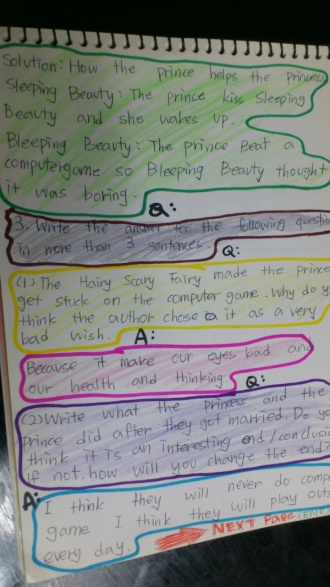 Solution: How the prince helps the princess
Sleeping Beauty: The prince kiss Sleeping
Beauty and she wakes up.
Bleeping Beauty: The prince Beat a
computergame so Bleeping Beauty thought
it was boring.
Q:
3. Write the answer for the following
in more than 3 sentences.
Q:
(1) The Hairy Scary Fairy made the
get stuck on the computer game. Why do
think the author chose it as a very
bad wish.
A:
Because it make our eyes bad and
our health and thinking.
Q:
(2) Write what the princess and the
prince did after they got married. Do
think it is an interesting end/
if not, how will you change the end?
A:
I think they will never do
game I think they will play
every day.
NEXT Page